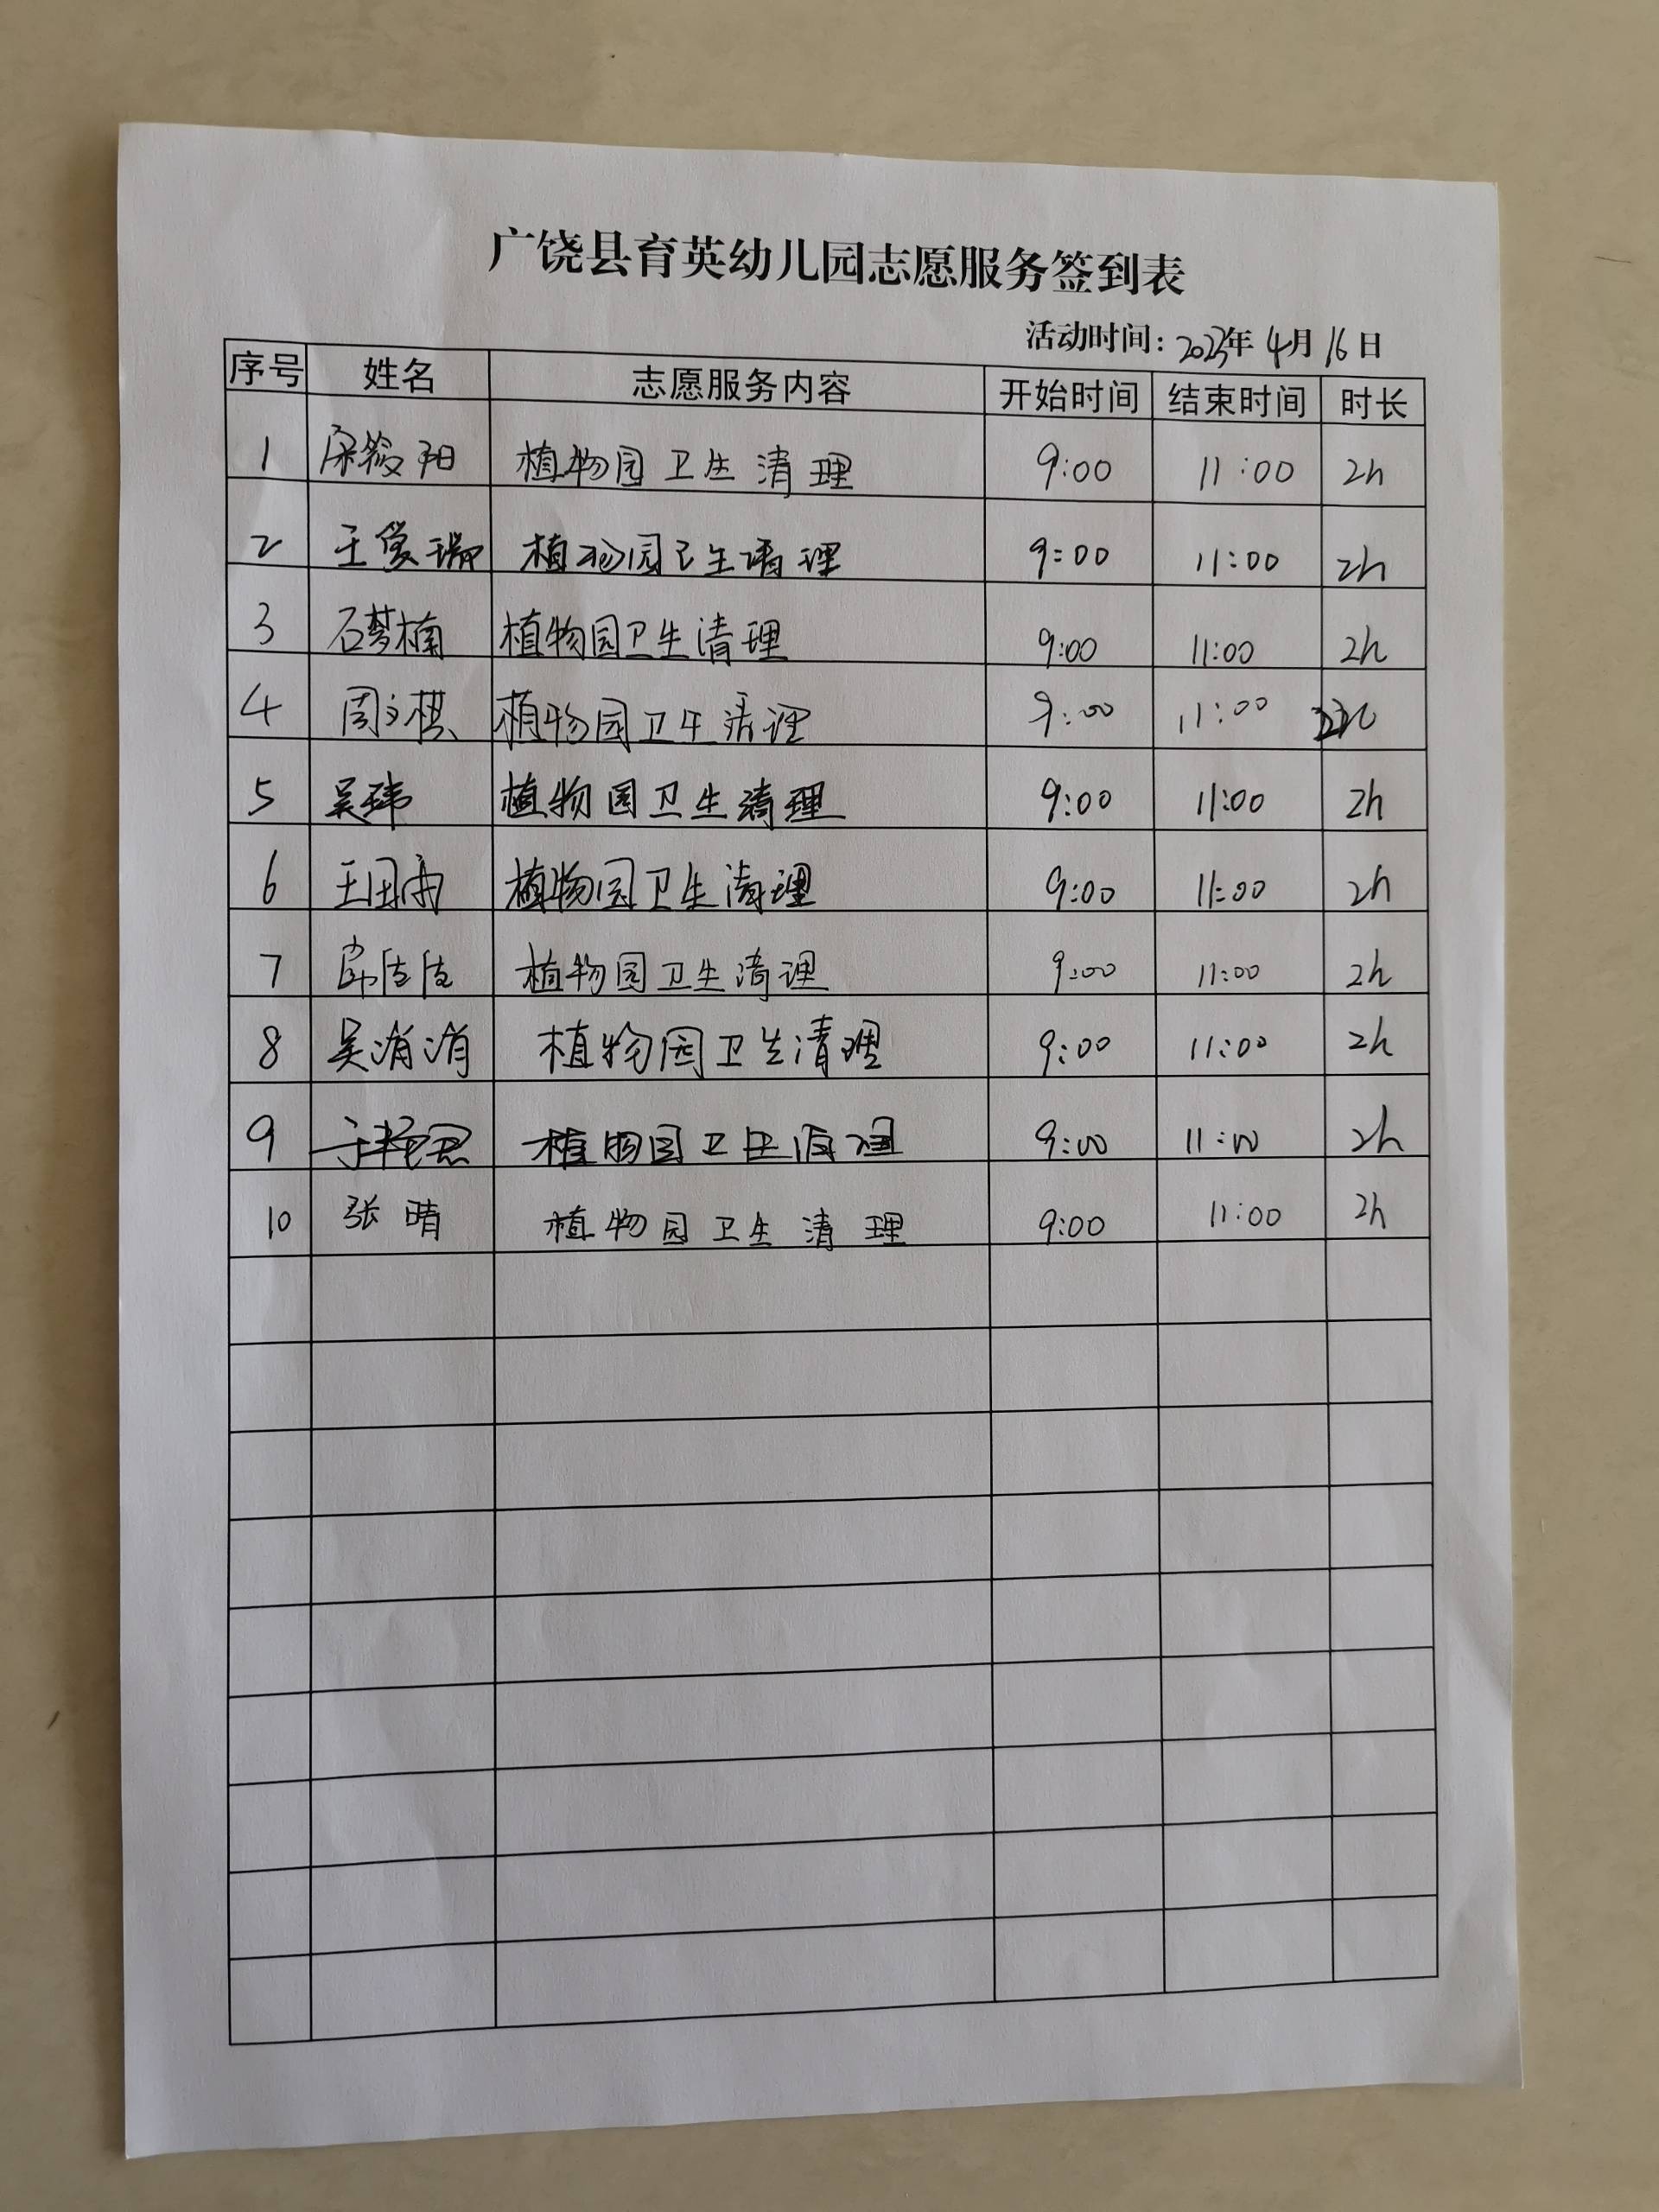 广饶县育英幼儿园志愿服务签到表
活动时间：2023年 4月 16日
序号 姓名 志愿服务内容 开始时间 结束时间 时长
1 植物园卫生清理 9:00 11:00 2h
2 植物园卫生清理 9:00 11:00 2h
3 石梦楠 植物园卫生清理 9:00 11:00 2h
4 周文棋 植物园卫生清理 9:00 11:00
5 吴玮 植物园卫生清理 9:00 11:00 2h
6 植物园卫生清理 9:00 11:00 2h
7 植物园卫生清理 9:00 11:00 2h
8 吴消消 植物园卫生清理 9:00 11:00 2h
9 植物园卫生清理 9:00 11:00 2h
10 张晴 植物园卫生清理 9:00 11:00 2h